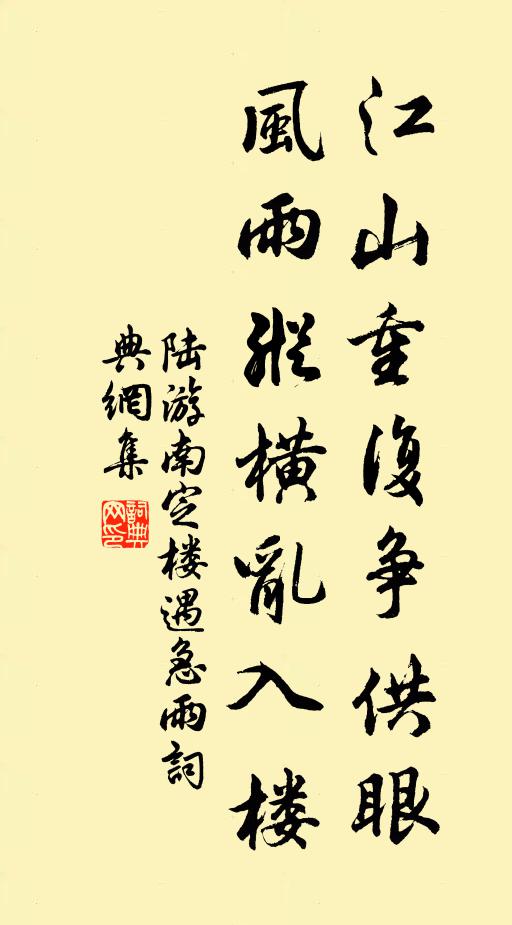 江山重复争供眼
風雨縱橫亂入楼
陆游南定楼遇急雨詞
典網集
詞典网印